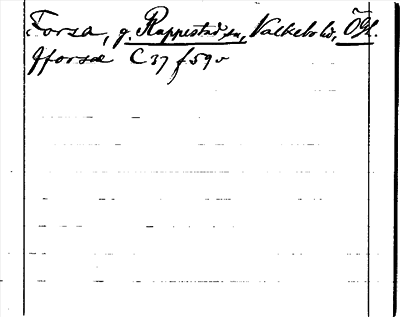 Forsa, g. Rappestad sn, Valkebo hd, Ögl.
Fforsæ C 37 f 59 v